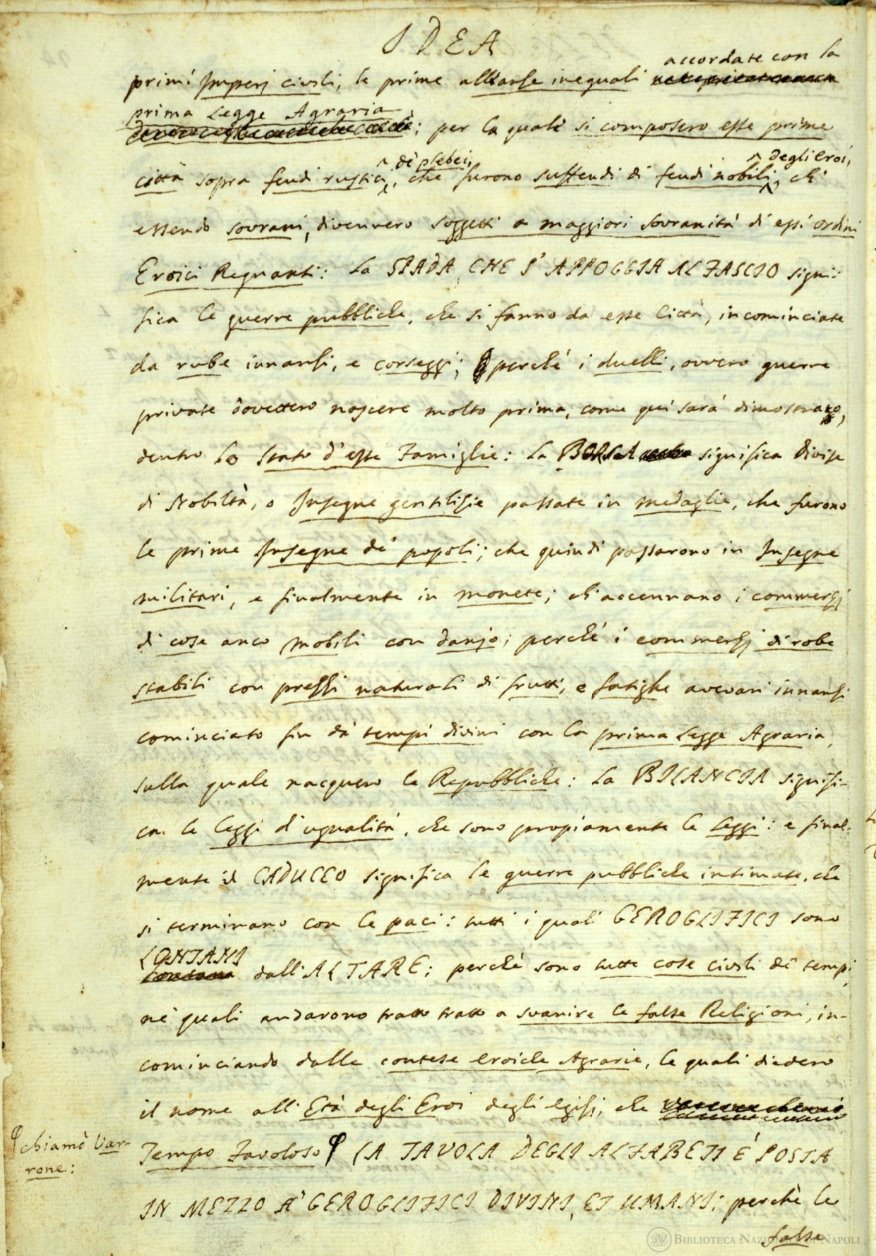 IDEA
primi Imperj civili, le prime allianse ineguali accordate con la
prima Legge Agraria; per la quale si composero esse prime
città sopra feudi rustici de' plebei, che furono suffeudi di feudi nobili degli Eroi, ch'
essendo sovrani, divennero soggetti a maggiori sovranità di essi ordini
Eroici Regnanti: La SPADA, CHE S' APPOGGIA AL FASCIO signi-
fica le guerre pubbliche, che si fanno da esse Città, incominciate
da rube innansi, e corseggi; perchè i duelli, ovvero guerre
private dovettero nascere molto prima, come quì sarà dimostrato,
dentro lo Stato d'esse Famiglie: La BORSA significa divise
di Nobiltà, o Insegne gentilisie passate in medaglie, che furono
le prime Insegne de' popoli; che quindi passarono in Insegne
militari, e finalmente in monete; ch'accennano i commersj
di cose anco mobili con danajo; perchè i commersj di robe
stabili con pressi naturali di frutti, e fatighe avevan innansi
cominciato fin da' tempi divini con la prima Legge Agraria,
sulla quale nacquero le Repubbliche: La BILANCIA signifi-
ca le leggi d'ugualità, che sono propiamente le Leggi: e final-
mente il CADUCEO significa le guerre pubbliche intimate, che
si terminano con le paci: tutti i quali GEROGLIFICI sono
LONTANI dall'ALTARE; perchè sono tutte cose civili de' tempi,
ne' quali andarono tratto tratto a svanire le false Religioni, in-
cominciando dalle contese eroiche Agrarie, le quali diedero
il nome all' Età degli Eroi degli Egisj, che
chiamò Var-
rone:
Tempo Favoloso LA TAVOLA DEGLI ALFABETI È POSTA
IN MEZZO A' GEROGLIFICI DIVINI, ET UMANI; perchè le
false
BIBLIOTECA NAZIONALE DI NAPOLI